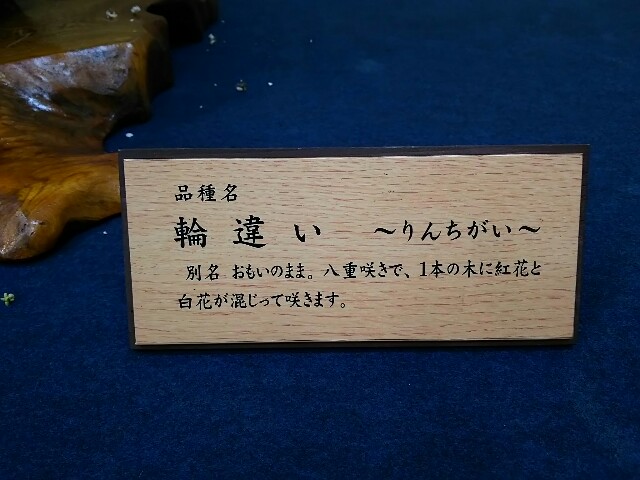 品種名
輪違い　～りんちがい～
別名 おもいのまま。八重咲きで、1本の木に紅花と
白花が混じって咲きます。